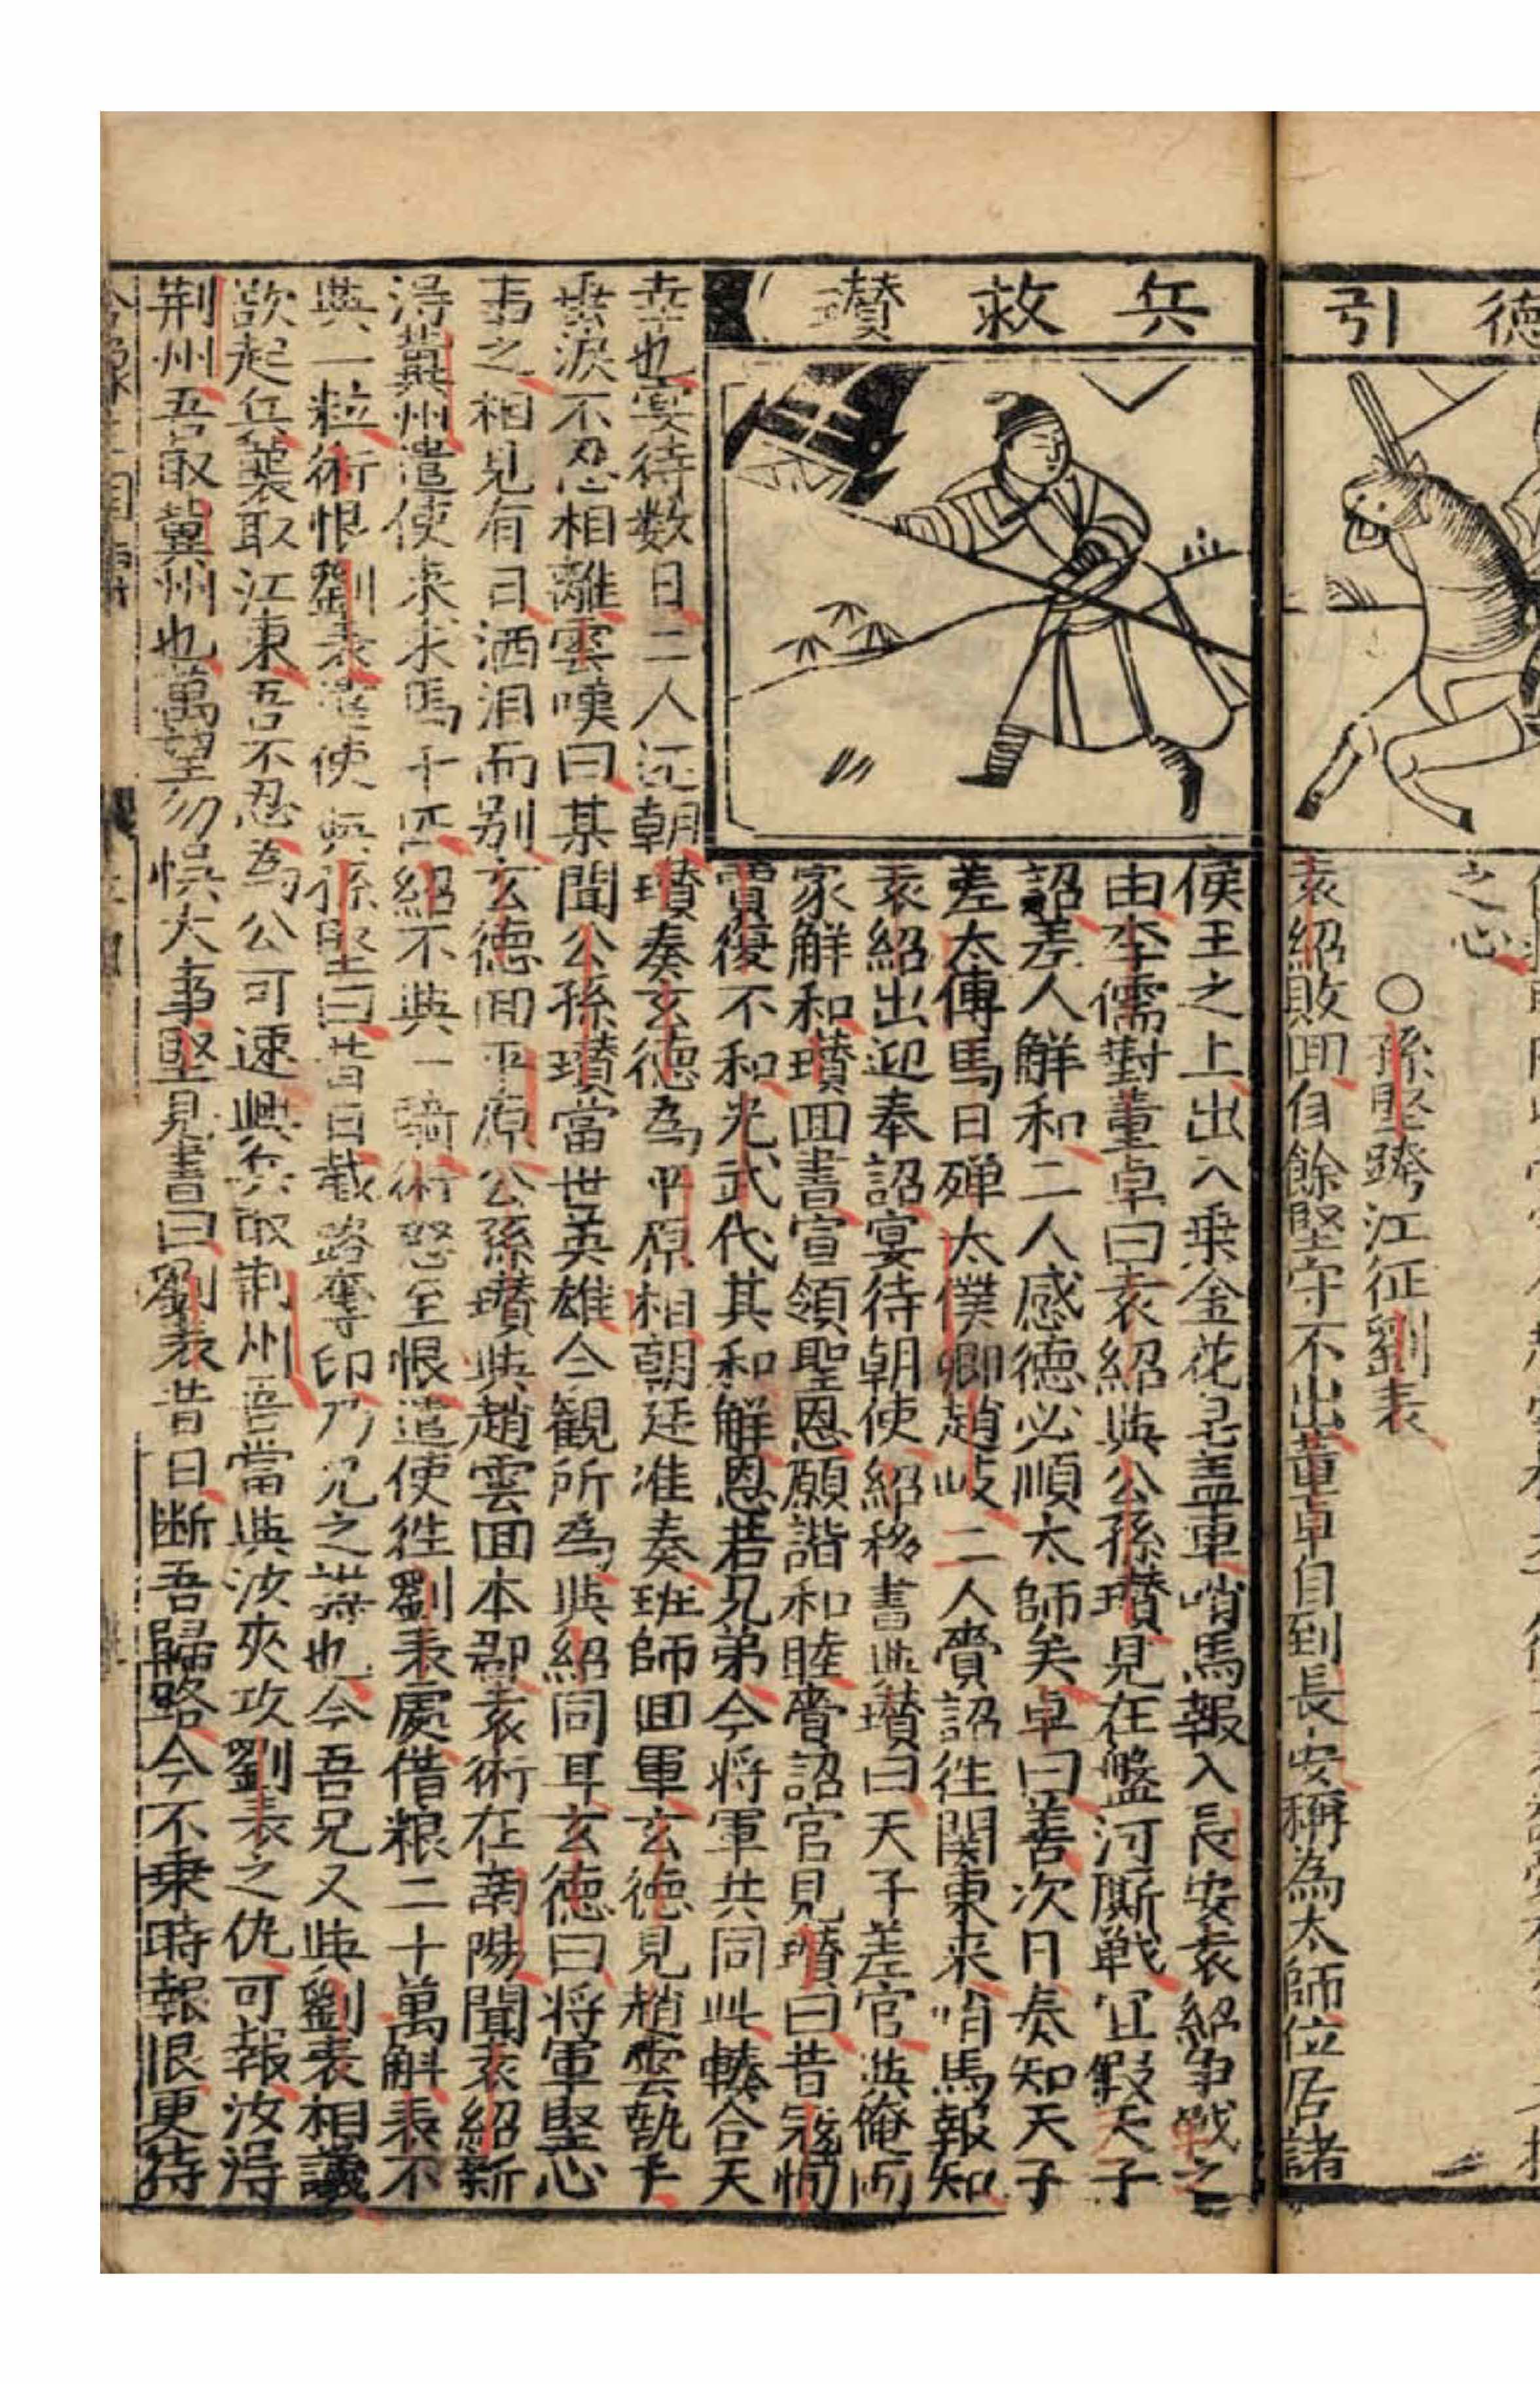 德引
之心
○孫堅跨江征劉表
袁紹敗囬自餘堅守不出董卓自到長安稱為太師位居諸
兵救瓚
侯王之上出入乗金花皂盖車哨馬報入長安袁紹争戰之
由李儒對董卓曰袁紹與公孫瓚見在盤河厮戰宜假天子
詔差人觧和二人感德必順太師矣卓曰善次日奏知天子
差太傅馬日殫太僕卿趙岐二人賫詔徃関東来哨馬報知
袁紹出迎奉詔宴待朝使紹移書與瓚曰天子差官與俺两
家觧和瓚囬書宣領聖恩願諧和睦賫詔官見瓚曰昔宼恂
賈復不和光武代其和觧恩若兄弟今将軍共同此輳合天
幸也宴待数日二人还朝瓚奏玄德為平原相朝廷准奏班師囬軍玄德見趙雲執手
垂淚不忍相離雲嘆曰某聞公孫瓚當世英雄今觀所為與紹同耳玄德曰将軍堅心
事之相見有日洒泪而别玄德囬平原公孫瓚與趙雲囬本郡袁術在南陽聞袁紹新
得兾州遣使来求馬千匹紹不與一騎術怒至恨遣使徃劉表處借粮二十萬斛表不
與一粒術恨劉表遣使與孫堅曰昔日截路奪印乃兄之謀也今吾兄又與劉表相議
欲起兵襲取江東吾不忍為公可速興兵取荆州吾當與汝夾攻劉表之仇可報汝得
荆州吾取兾州也萬望勿悞大事堅見書曰劉表昔日断吾歸路今不乗時報恨更待